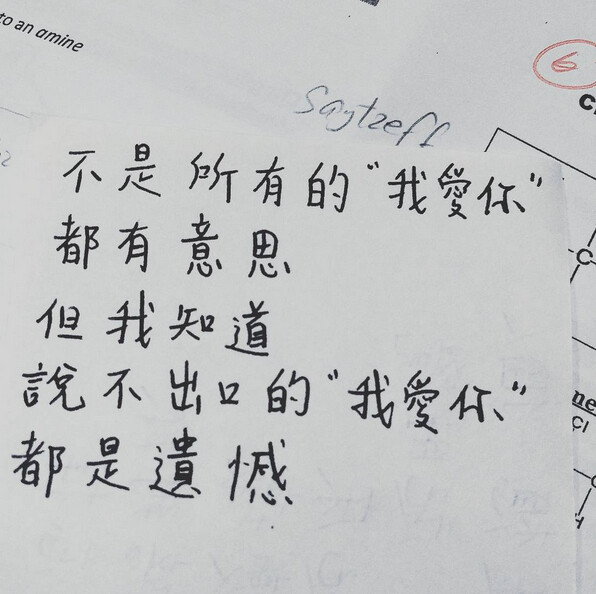 to an amine
6
Saytzeff
不是所有的"我愛你"
都有意思
但我知道
說不出口的"我愛你"
都是遺憾
C
ne
Cl